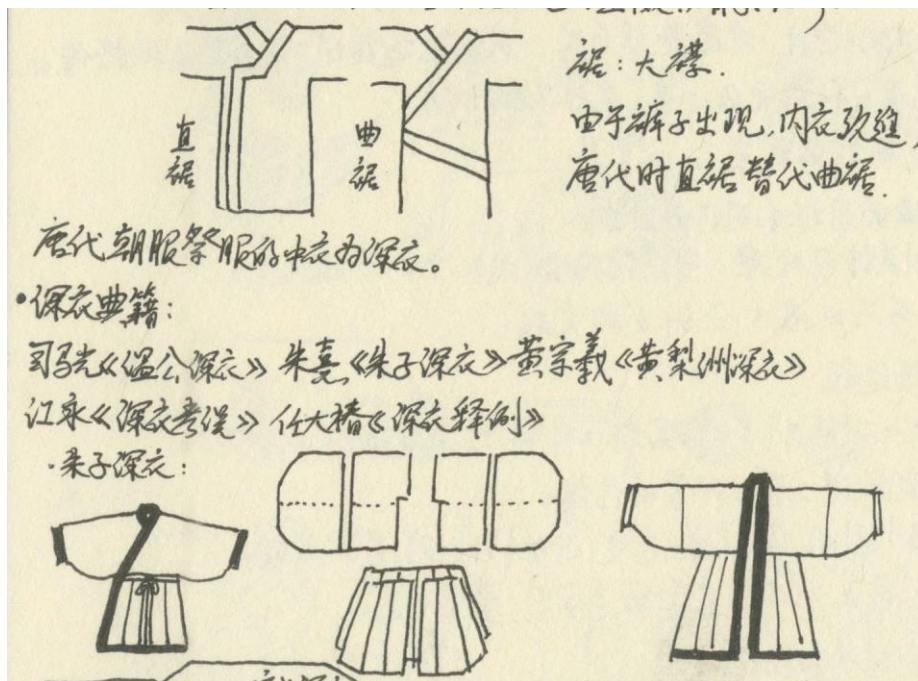 直裾
曲裾
裾：大襟.
由于裤子出现,内衣
唐代时直裾替代曲裾.
唐代朝服祭服的中衣为深衣。
·深衣典籍：
司马光《温公深衣》朱熹《朱子深衣》黄宗羲《黄梨洲深衣》
江永《深衣考误》任大椿《深衣释例》
·朱子深衣：